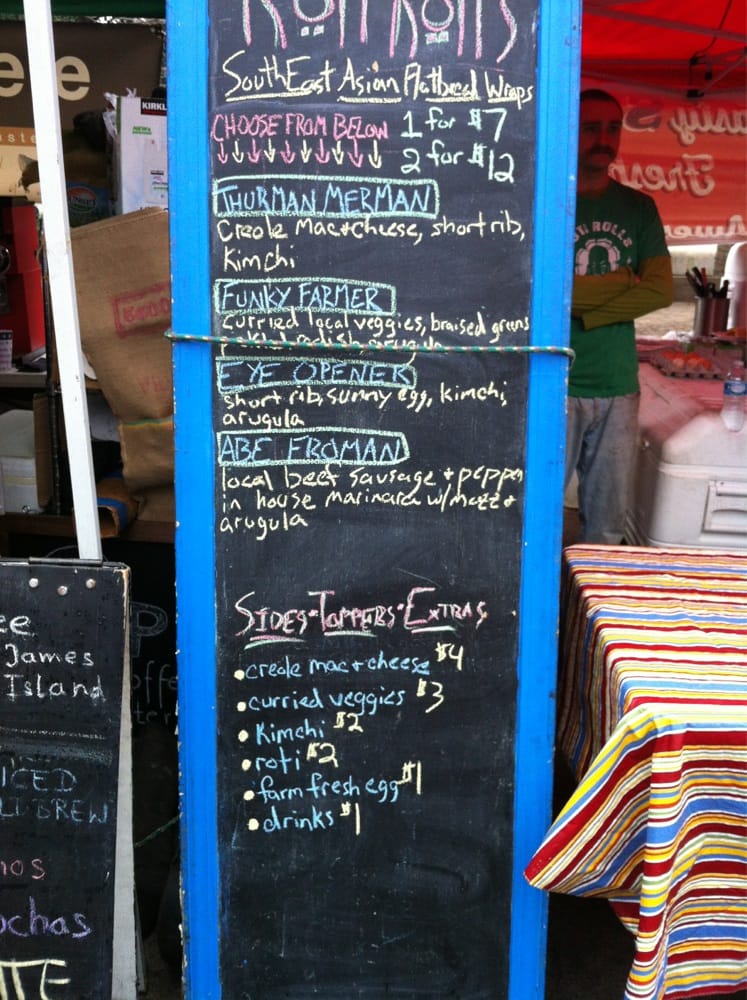 ROTI ROLLS
SouthEast Asian Flatbread Wraps
CHOOSE FROM BELOW 1 for $7
2 for $12
THURMAN MERMAN
Creole Mac+cheese, short rib,
Kimchi
FUNKY FARMER
curried local veggies, braised greens
radish, arugula
EYE OPENER
short rib, sunny egg, kimchi,
arugula
ABE FROMAN
local beef sausage + pepper
in house marinara w/mozz +
arugula
SIDES • TOPPERS • EXTRAS
• creole mac+cheese $4
• curried veggies $3
• Kimchi $2
• roti $2
• farm fresh egg $1
• drinks $1
James
Island
ICED
BREW
KIRKL
TI ROLLS
Fresh